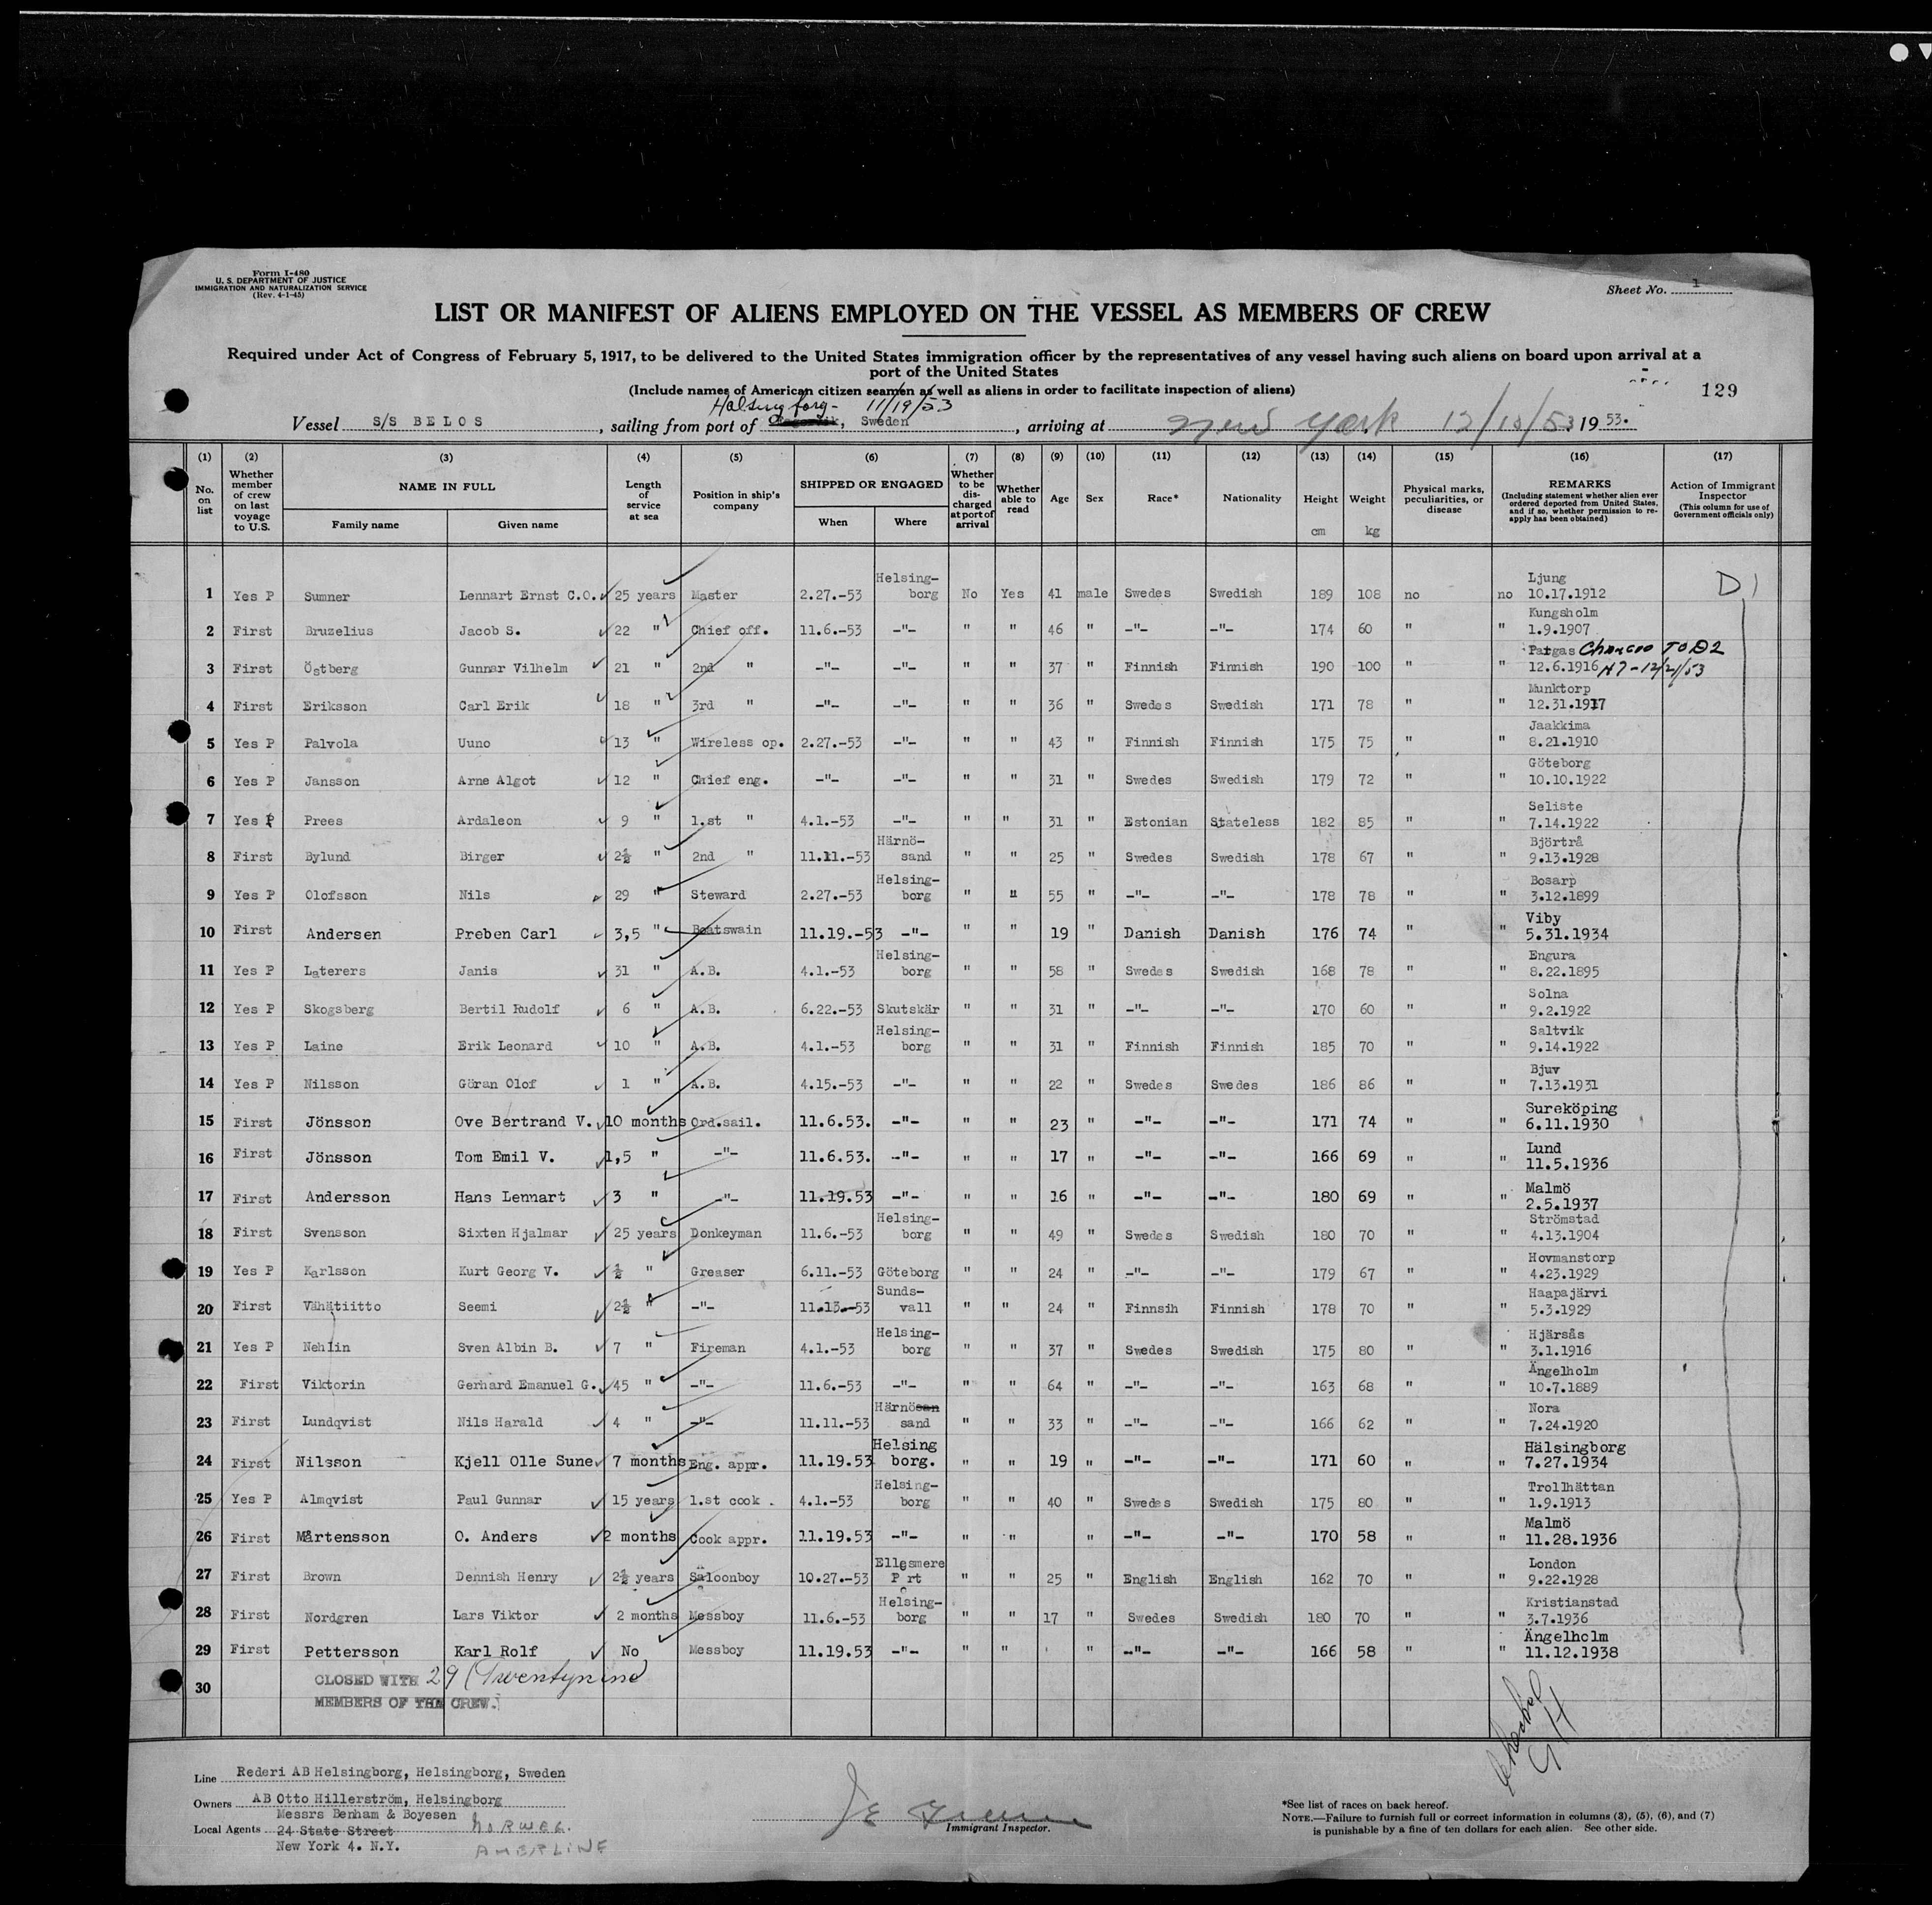 Form I-480
U. S. DEPARTMENT OF JUSTICE
IMMIGRATION AND NATURALIZATION SERVICE
(Rev. 4-1-45)
Sheet No. 1
LIST OR MANIFEST OF ALIENS EMPLOYED ON THE VESSEL AS MEMBERS OF CREW
Required under Act of Congress of February 5, 1917, to be delivered to the United States immigration officer by the representatives of any vessel having such aliens on board upon arrival at a
port of the United States
(Include names of American citizen seamen as well as aliens in order to facilitate inspection of aliens)
129
Halsingborg- 11/19/53
Vessel S/S BELOS, sailing from port of , Sweden, arriving at New York 12/18/53 19 53.
(1) (2) (3) (4) (5) (6) (7) (8) (9) (10) (11) (12) (13) (14) (15) (16) (17)
No. on list Whether member of crew on last voyage to U.S. NAME IN FULL Family name Given name Length of service at sea Position in ship's company SHIPPED OR ENGAGED When Where Whether to be discharged at port of arrival Whether able to read Age Sex Race* Nationality Height cm Weight kg Physical marks, peculiarities, or disease REMARKS (Including statement whether alien ever ordered deported from United States, and if so, whether permission to reapply has been obtained) Action of Immigrant Inspector (This column for use of Government officials only)
1 Yes P Sumner Lennart Ernst C.O. 25 years Master 2.27.-53 Helsing-borg No Yes 41 male Swedes Swedish 189 108 no no Ljung 10.17.1912 D1
2 First Bruzelius Jacob S. 22 " Chief off. 11.6.-53 -"- " " 46 " -"- -"- 174 60 " " Kungsholm 1.9.1907
3 First Östberg Gunnar Vilhelm 21 " 2nd " -"- -"- " " 37 " Finnish Finnish 190 100 " " Pargas 12.6.1916 Changed TO D2 N7-12/21/53
4 First Eriksson Carl Erik 18 " 3rd " -"- -"- " " 36 " Swedes Swedish 171 78 " " Munktorp 12.31.1917
5 Yes P Palvola Uuno 13 " Wireless op. 2.27.-53 -"- " " 43 " Finnish Finnish 175 75 " " Jaakkima 8.21.1910
6 Yes P Jansson Arne Algot 12 " Chief eng. -"- -"- " " 31 " Swedes Swedish 179 72 " " Göteborg 10.10.1922
7 Yes P Prees Ardaleon 9 " 1.st " 4.1.-53 -"- " " 31 " Estonian Stateless 182 85 " " Seliste 7.14.1922
8 First Bylund Birger 2½ " 2nd " 11.11.-53 Härnö-sand " " 25 " Swedes Swedish 178 67 " " Björtrå 9.13.1928
9 Yes P Olofsson Nils 29 " Steward 2.27.-53 Helsing-borg " " 55 " -"- -"- 178 78 " " Bosarp 3.12.1899
10 First Andersen Preben Carl 3,5 " Boatswain 11.19.-53 -"- " " 19 " Danish Danish 176 74 " " Viby 5.31.1934
11 Yes P Laterers Janis 31 " A.B. 4.1.-53 Helsing-borg " " 58 " Swedes Swedish 168 78 " " Engura 8.22.1895
12 Yes P Skogsberg Bertil Rudolf 6 " A.B. 6.22.-53 Skutskär " " 31 " -"- -"- 170 60 " " Solna 9.2.1922
13 Yes P Laine Erik Leonard 10 " A.B. 4.1.-53 Helsing-borg " " 31 " Finnish Finnish 185 70 " " Saltvik 9.14.1922
14 Yes P Nilsson Göran Olof 1 " A.B. 4.15.-53 -"- " " 22 " Swedes Swedes 186 86 " " Bjuv 7.13.1931
15 First Jönsson Ove Bertrand V. 10 months Ord.sail. 11.6.53. -"- " " 23 " -"- -"- 171 74 " " Sureköping 6.11.1930
16 First Jönsson Tom Emil V. 1,5 " -"- 11.6.53. -"- " " 17 " -"- -"- 166 69 " " Lund 11.5.1936
17 First Andersson Hans Lennart 3 " -"- 11.19.53 -"- " " 16 " -"- -"- 180 69 " " Malmö 2.5.1937
18 First Svensson Sixten Hjalmar 25 years Donkeyman 11.6.-53 Helsing-borg " " 49 " Swedes Swedish 180 70 " " Strömstad 4.13.1904
19 Yes P Karlsson Kurt Georg V. ½ " Greaser 6.11.-53 Göteborg " " 24 " -"- -"- 179 67 " " Hovmanstorp 4.23.1929
20 First Vähätiitto Seemi 2½ " -"- 11.13.-53 Sunds-vall " " 24 " Finnsih Finnish 178 70 " " Haapajärvi 5.3.1929
21 Yes P Nehlin Sven Albin B. 7 " Fireman 4.1.-53 Helsing-borg " " 37 " Swedes Swedish 175 80 " " Hjärsås 3.1.1916
22 First Viktorin Gerhard Emanuel G. 45 " -"- 11.6.-53 -"- " " 64 " -"- -"- 163 68 " " Ängelholm 10.7.1889
23 First Lundqvist Nils Harald 4 " -"- 11.11.-53 Härnösan sand " " 33 " -"- -"- 166 62 " " Nora 7.24.1920
24 First Nilsson Kjell Olle Sune 7 months Eng. appr. 11.19.53 Helsing borg. " " 19 " -"- -"- 171 60 " " Hälsingborg 7.27.1934
25 Yes P Almqvist Paul Gunnar 15 years 1.st cook . 4.1.-53 Helsing-borg " " 40 " Swedes Swedish 175 80 " " Trollhättan 1.9.1913
26 First Mårtensson O. Anders 2 months Cook appr. 11.19.53 -"- " " " -"- -"- 170 58 " " Malmö 11.28.1936
27 First Brown Dennish Henry 2½ years Saloonboy 10.27.-53 Ellesmere Port " " 25 " English English 162 70 " " London 9.22.1928
28 First Nordgren Lars Viktor 2 months Messboy 11.6.-53 Helsing-borg " " 17 " Swedes Swedish 180 70 " " Kristianstad 3.7.1936
29 First Pettersson Karl Rolf No Messboy 11.19.53 -"- " " " -"- -"- 166 58 " " Ängelholm 11.12.1938
30 CLOSED WITH 29 (Twentynine)
MEMBERS OF THE CREW.
Checked
Line Rederi AB Helsingborg, Helsingborg, Sweden
Owners AB Otto Hillerström, Helsingborg
Messrs Benham & Boyesen
Local Agents 24 State Street NORWEG.
New York 4. N.Y. AMERLINE
Immigrant Inspector.
*See list of races on back hereof.
NOTE.—Failure to furnish full or correct information in columns (3), (5), (6), and (7)
is punishable by a fine of ten dollars for each alien. See other side.